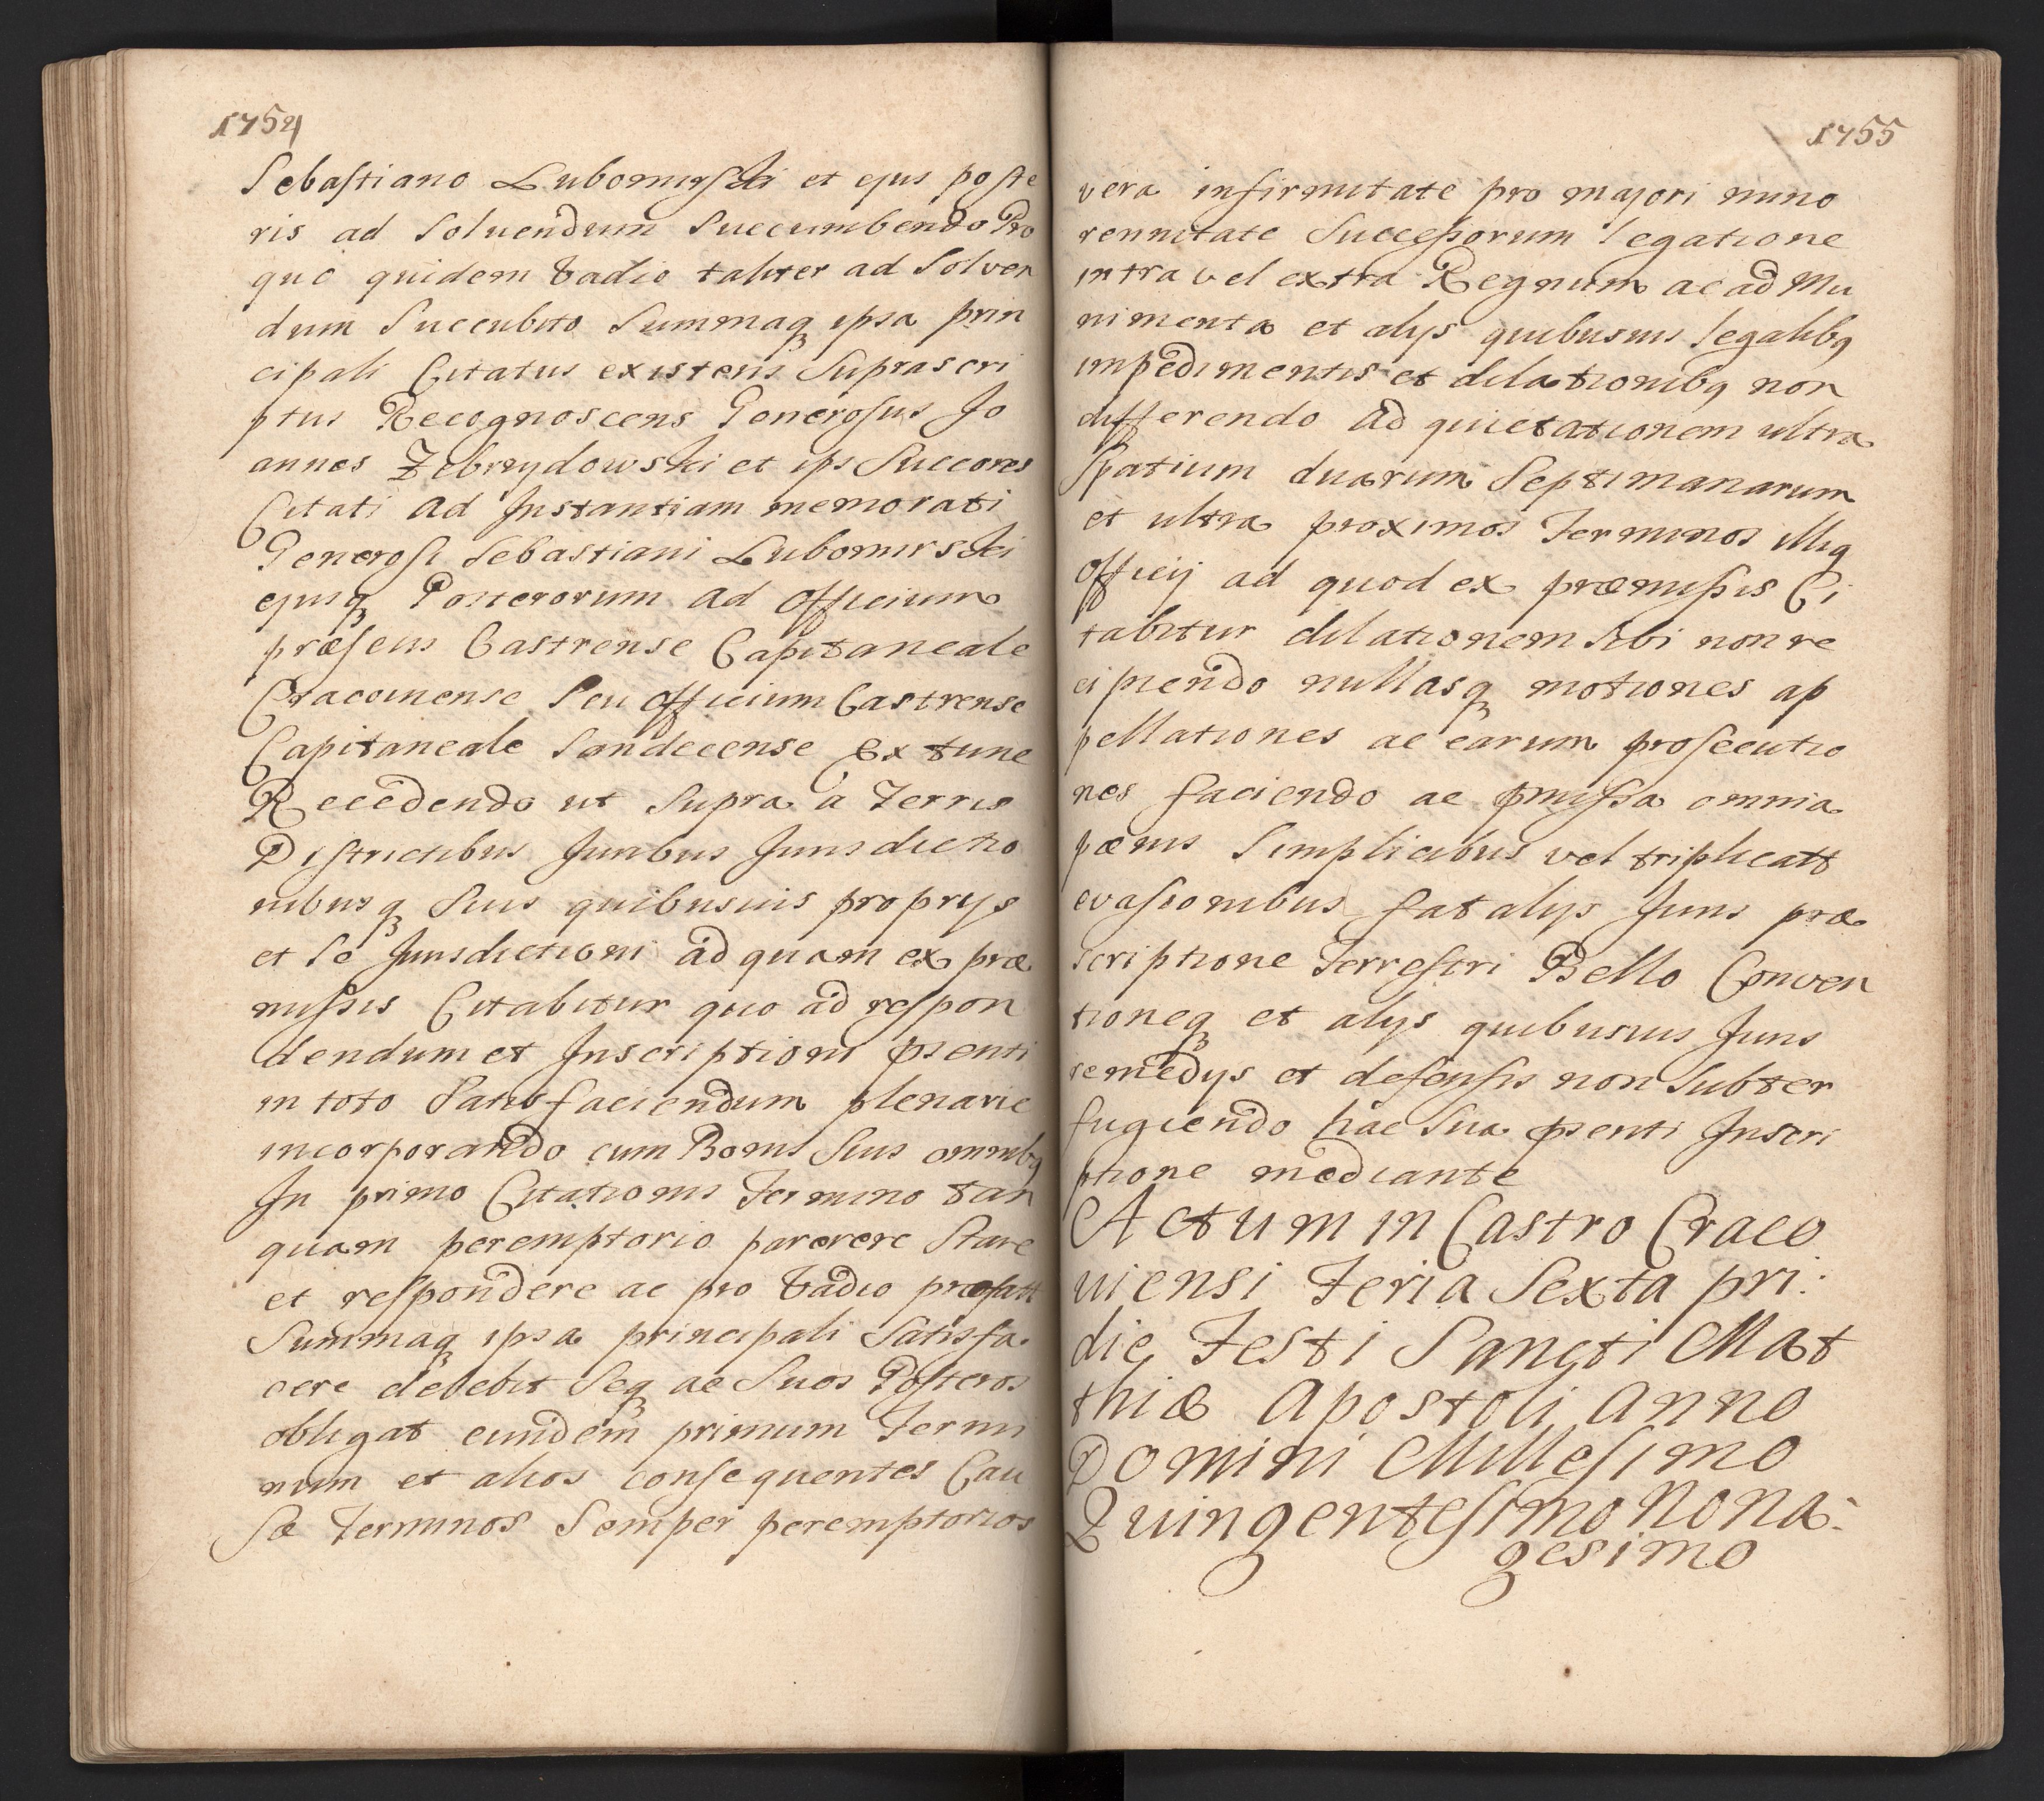 1754
Sebastiano Lubomirski et ejus poste
ris ad Solvendum Succumbendo Pro
quo quidem Vadio taliter ad Solven
dum Succubito Summaq ipsa prin
cipali Citatus existens Suprascri
ptus Recognoscens Generosus Jo
annes Zebrzydowski et ips Succores
Citati ad Instantiam memorati
Generosi Sebastiani Lubomirski
ejusq Posterorum ad Officium
præsens Castrense Capitaneale
Cracoviense Seu Officium Castrense
Capitaneale Sandecense Ex tunc
Recedendo ut Supra a Terris
Districtibus Juribus Jurisdictio
nibusq Suis quibusuis proprys
et Se Jurisdictioni ad quam ex præ
missis Citabitur quo ad respon
dendum et Inscriptioni psenti
in toto Satisfaciendum plenarie
incorporando cum Bonis Suis omnibq
In primo Citationis Termino tan
quam peremptorio parerere Stare
et respondere ac pro Vadio præfatt
Summaq ipsa principali Satisfa
cere debebit Seq ac Suos Posteros
obligat eundem primum Termi
num et alios consequentes Cau
sæ Terminos Semper peremptorios
1755
vera infirmitate pro majori mino
rennitate Successorum legatione
intra vel extra Regnum ac ad Mu
nimenta et alys quibusuis legalibq
impedimentis et dilationibq non
differendo ad quietationem ultra
Spatium duarum Septimanarum
et ultra proximos Terminos illiq
Officij ad quod ex præmissis Ci
tabitur dilationem Sibi non re
cipiendo nullasq motiones ap
pellationes ac earum prosecutio
nes faciendo ac pmissa omnia
pænis Simplicibus vel triplicatt
evasionibus fatalys Juris præ
scriptione Terrestri Bello Conven
tioneq et alys quibusuis Juris
remedys et defensis non Subter
fugiendo hac Sua psenti Inscri
ptione mediante
Actum in Castro Craco
uiensi Feria Sexta pri:
die Festi Sancti Mat
thiæ Apostoli Anno
Domini Millesimo
Quingentesimo Nona:
gesimo